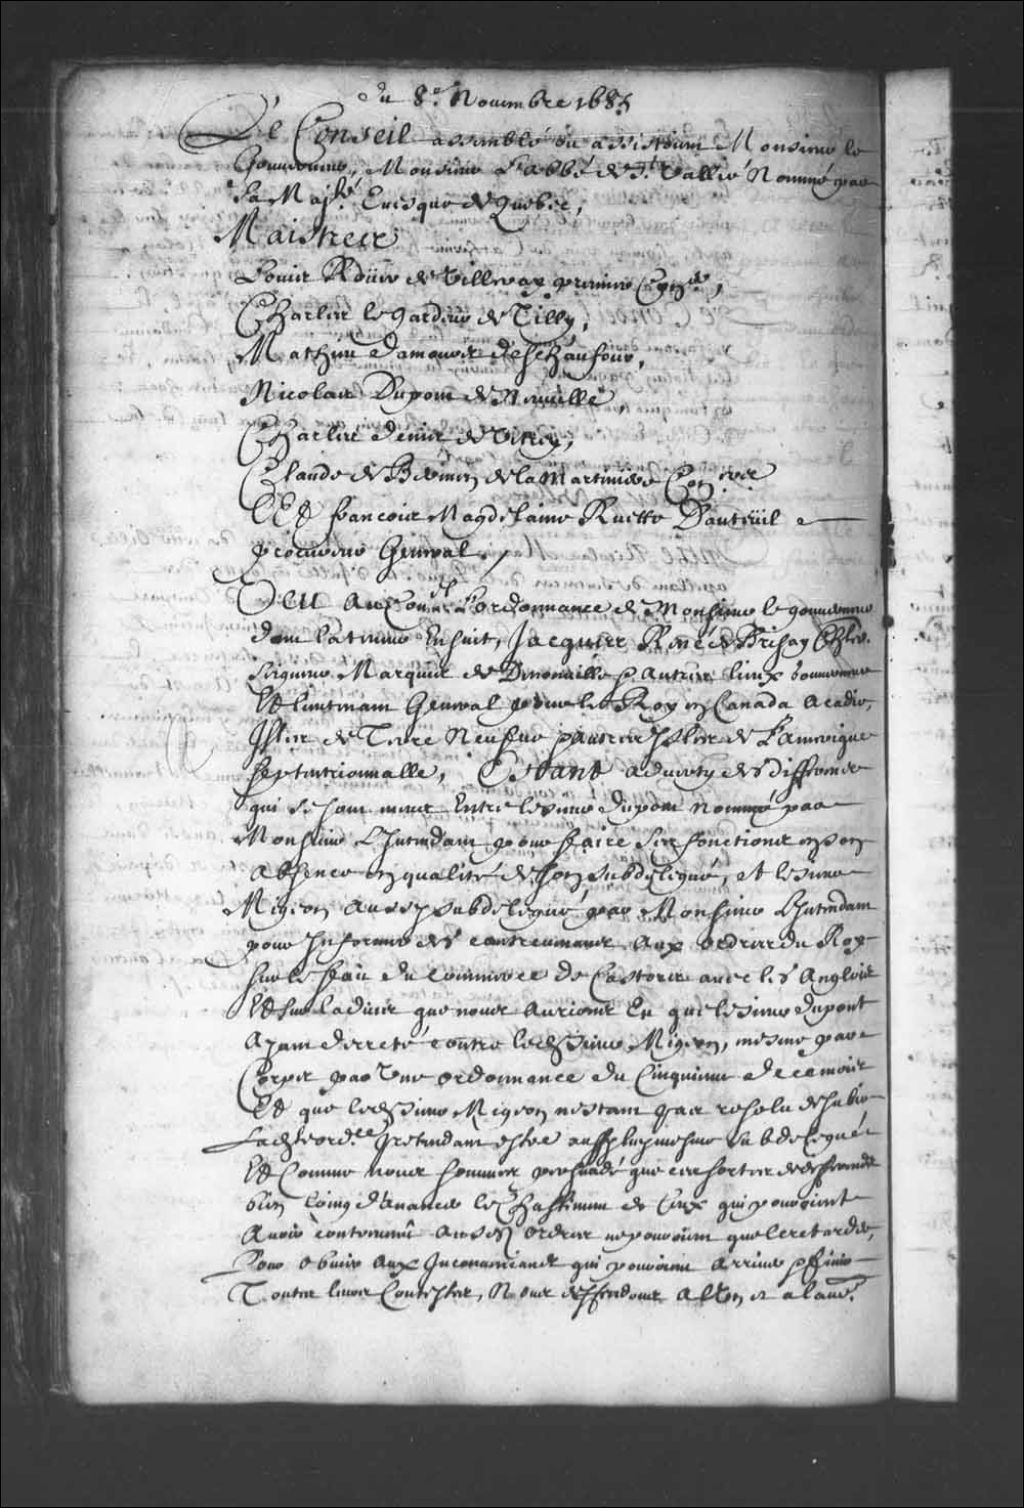 Du 8.e Nouembre 1685
Le Conseil assemblé ou assistoient Monsieur le
Gouuerneur, Monsieur L'abbé de St. Vallier Nommé par
Sa Maj.té Euesque de Quebec,
Maistres
Louis Roüer de Villeray premier Con.er,
Charles le gardeur de Tilly,
Mathieu Damours deschaufour,
Nicolas Dupont de Neuuille
Charles Denis de Vitré,
Claude de Bermen de la Martiniere Con.ers
Et francois Magdelaine Ruette Dauteüil
procureur General./
Veu au Con.el L'ordonnance de Monsieur le gouuerneur
dont la teneur Ensuit, Jacques René de Brisay Ch.er
Seigneur Marquis de Denonuille & autres lieux Gouuerneur
Et lieutenant General pour le Roy en Canada Acadie,
Isles de Terre Neufue & autres Isles de L'amerique
septentrionnalle, Estant aduerty des differends
qui se sont meus Entre le sieur dupont nommé par
Monsieur L'Intendant pour faire ses fonctions en son
absence en qualité de son subdelegué, et le sieur
Migeon aussy subdelegué par Monsieur L'Intendant
pour Informer des contreuenans aux ordres du Roy
sur le fait du commerce de Castors auec les Anglois
Et sur laduis que nous aurions Eu que le sieur dupont
ayant decreté contre ledit sieur Migeon, mesme par
Corps par Vne ordonnance du Cinquieme de ce mois
Et que ledit sieur Migeon nestant pas resolu de subir
Ladite ord.ce pretendant estre aussy luy mesme subdelegué
Et Comme nous sommes persuadé que ces sortes de differends
bien loing d'auancer le Chastiment de Ceux qui pouroient
Auoir contreuenu ausd. ordres ne pouroient que le retarder,
Pour obuier aux Inconueniens qui pouroient arriuer & finir
Toutes leurs Contestes, Nous deffendons a l'Vn et a l'aut.